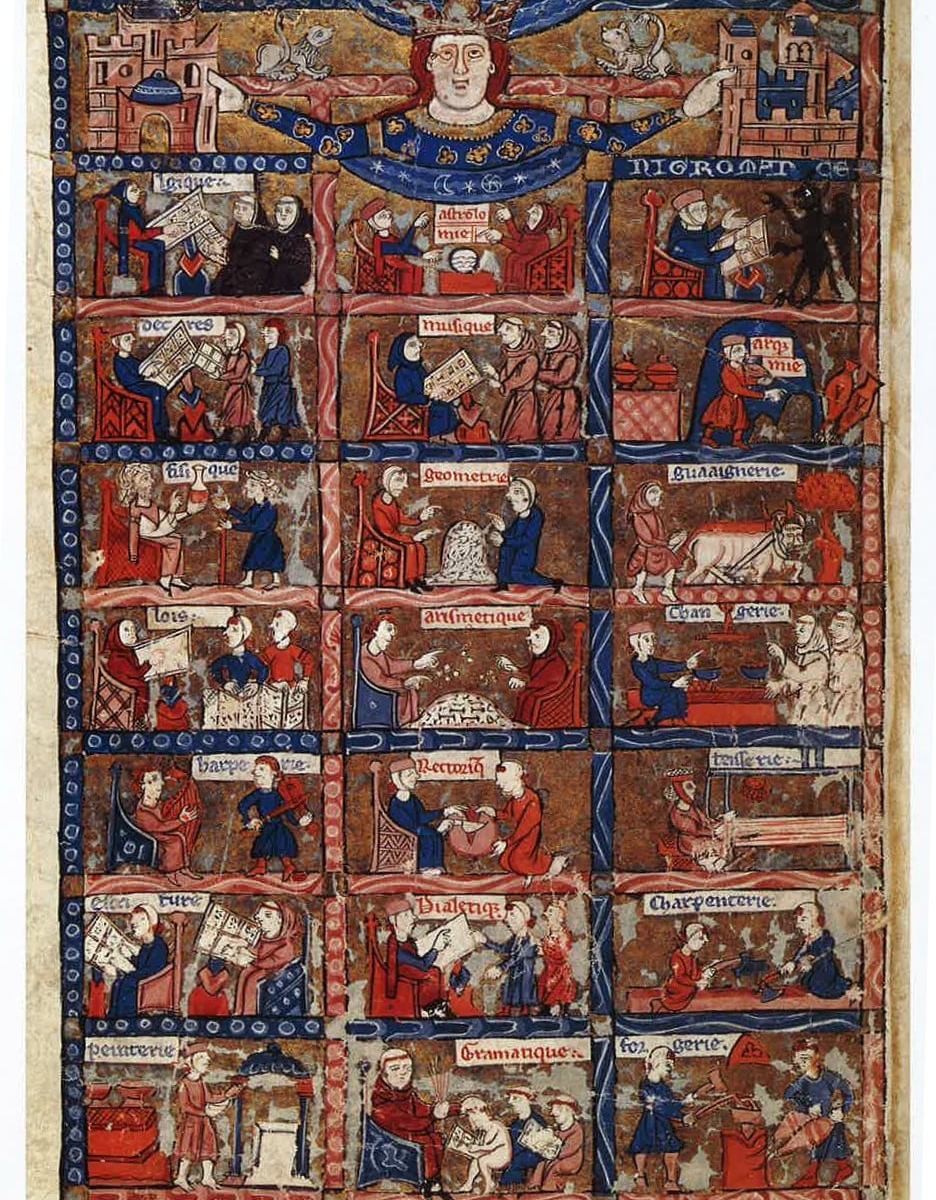 NIGROMAT CE
astrolo
mie
dec res
musique
arqͥ
mie
fisi que
geometrie
guaaignerie.
lois:
arismetique
Chan gerie.
harpe rie.
Rectoriq̄
teisserie:
escri ture
Dialetiq̄
Charpenterie.
peinterie
Gramatique:
for gerie.